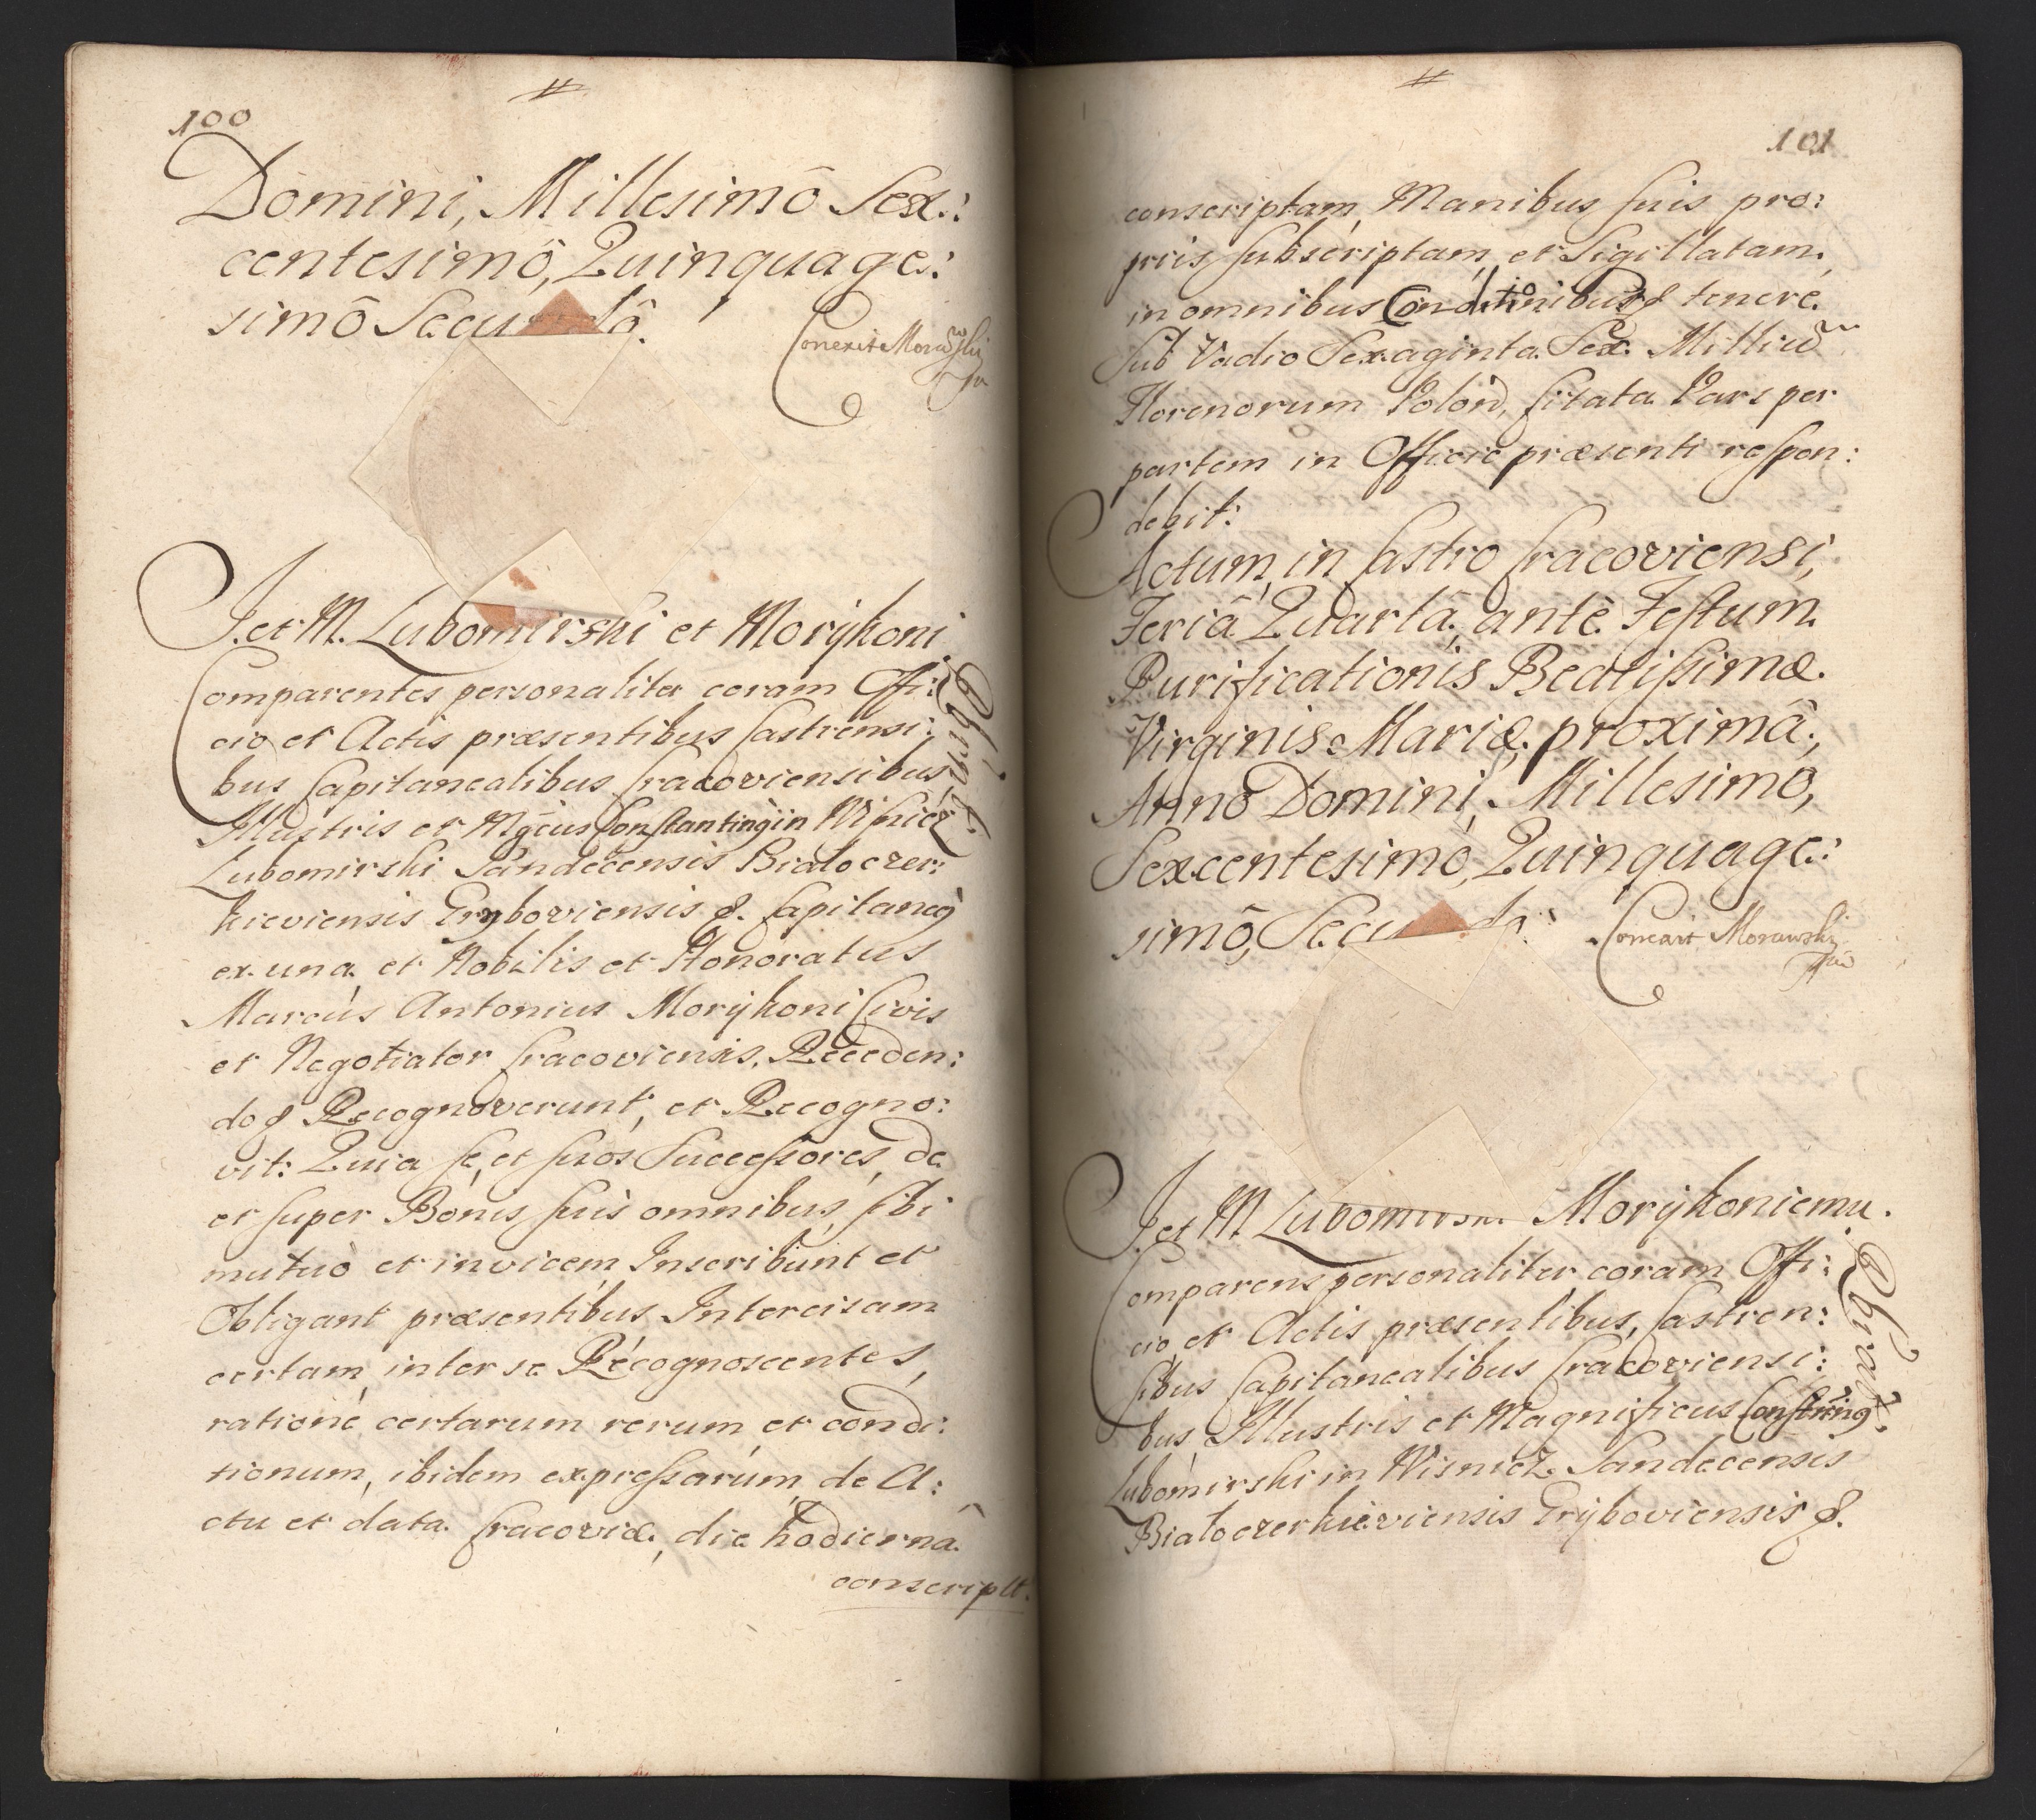 100
Domini, Millesimô Sex:
centesimô, Quinquage:
simô Secundô.
Correxit Morawski
J. et M. Lubomirski et Morÿkoni
Obligāt.
Comparentes personaliter coram Offi:
cio et Actis præsentibus Castrensi:
bus Capitanealibus Cracoviensibus,
Illustris et Mgcus Constantinq in Wisnicz
Lubomirski Sandecensis Białoczer:
kieviensis Gryboviensis &. Capitaneq
ex una, et Nobilis et Honoratus
Marcus Antonius Morÿkoni Civis
et Negotiator Cracoviensis, Receden:
do & Recognoverunt, et Recogno:
vit: Quia se, et suos Successores, de
et super Bonis suis omnibus, sibi
mutuò et invicem Inscribunt et
Obligant præsentibus Intercisam
certam, inter se Recognoscentes,
ratione certarum rerum, et condi:
tionum, ibidem expressarum, de A:
ctu et data Cracoviæ, die hodiernâ
conscript.
101
conscriptam, Manibus suis pro:
priis, subscriptam, et Sigillatam,
in omnibus Conditionibus & tenere.
Sub Vadio Sexaginta Sex Milliū
Florenorum Polon, citata Pars per
partem in Officio præsenti respon:
debit:
Actum, in Castro Cracoviensi,
Feriâ Quartâ, antè Festum
Purificationis Beatissimæ
Virginis Mariæ, proximâ,
Anno Domini, Millesimo,
Sexcentesimo, Quinquage:
simô, Secundo.
Correxit Morawski
J. et M. Lubomirski Morÿkoniemu.
Obligāt.
Comparens personaliter coram Offi:
cio et Actis præsentibus, Castren:
sibus Capitanealibus Cracoviensi:
bus, Illustris et Magnificus Constting
Lubomirski in Wisnicz Sandecensis
Białoczerkieviensis Grÿboviensis &.